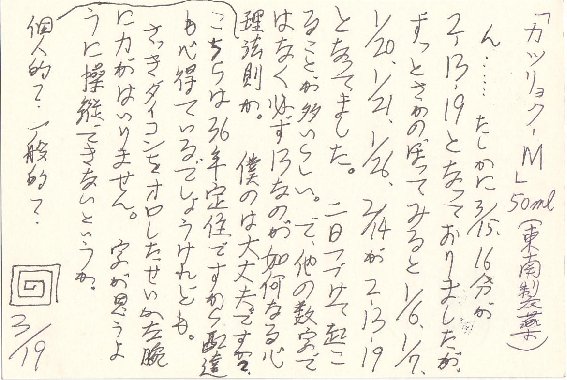 「カツリョクーM」50ml(東南製薬)
ん……たしかに3/15.16分が
2.13.19となっておりましたが、
ずっとさかのぼってみると1/6、1/7、
1/20、1/21、1/26、2/14が2.13.19
となってました。二日つづけて起こ
ることが多いらしい。で、他の数字で
はなく必ず13なのが如何なる心
理法則か。僕のは大丈夫ですか?
こちらは36年定住ですから配達
も心得ているでしょうけれども。
さっきダイコンをオロしたせいか左腕
に力がはいりません。字が思うよ
うに操縦できないというか。
個人的?一般的?
3/19